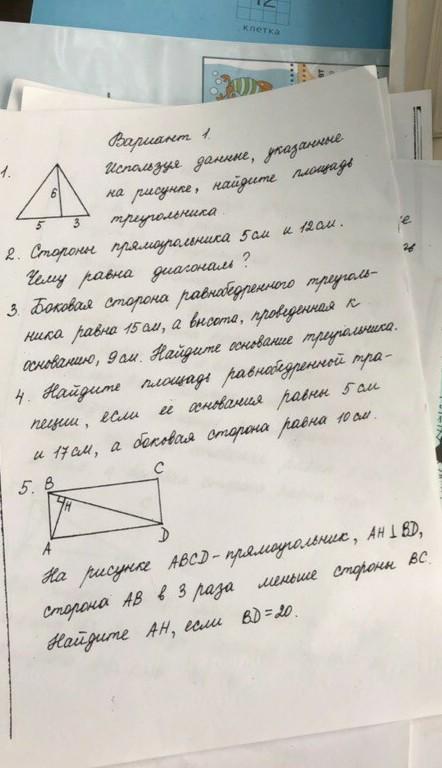 12
клетка
Вариант 1.
1.
6
5 3
Используя данные, указанные
на рисунке, найдите площадь
треугольника.
2. Стороны прямоугольника 5 см и 12 см.
Чему равна диагональ?
3. Боковая сторона равнобедренного треуголь-
ника равна 15 см, а высота, проведенная к
основанию, 9 см. Найдите основание треугольника.
4. Найдите площадь равнобедренной тра-
пеции, если её основания равны 5 см
и 17 см, а боковая сторона равна 10 см.
5.
B C
H
A D
На рисунке ABCD - прямоугольник, AH ⊥ BD,
сторона AB в 3 раза меньше стороны BC.
Найдите AH, если BD = 20.